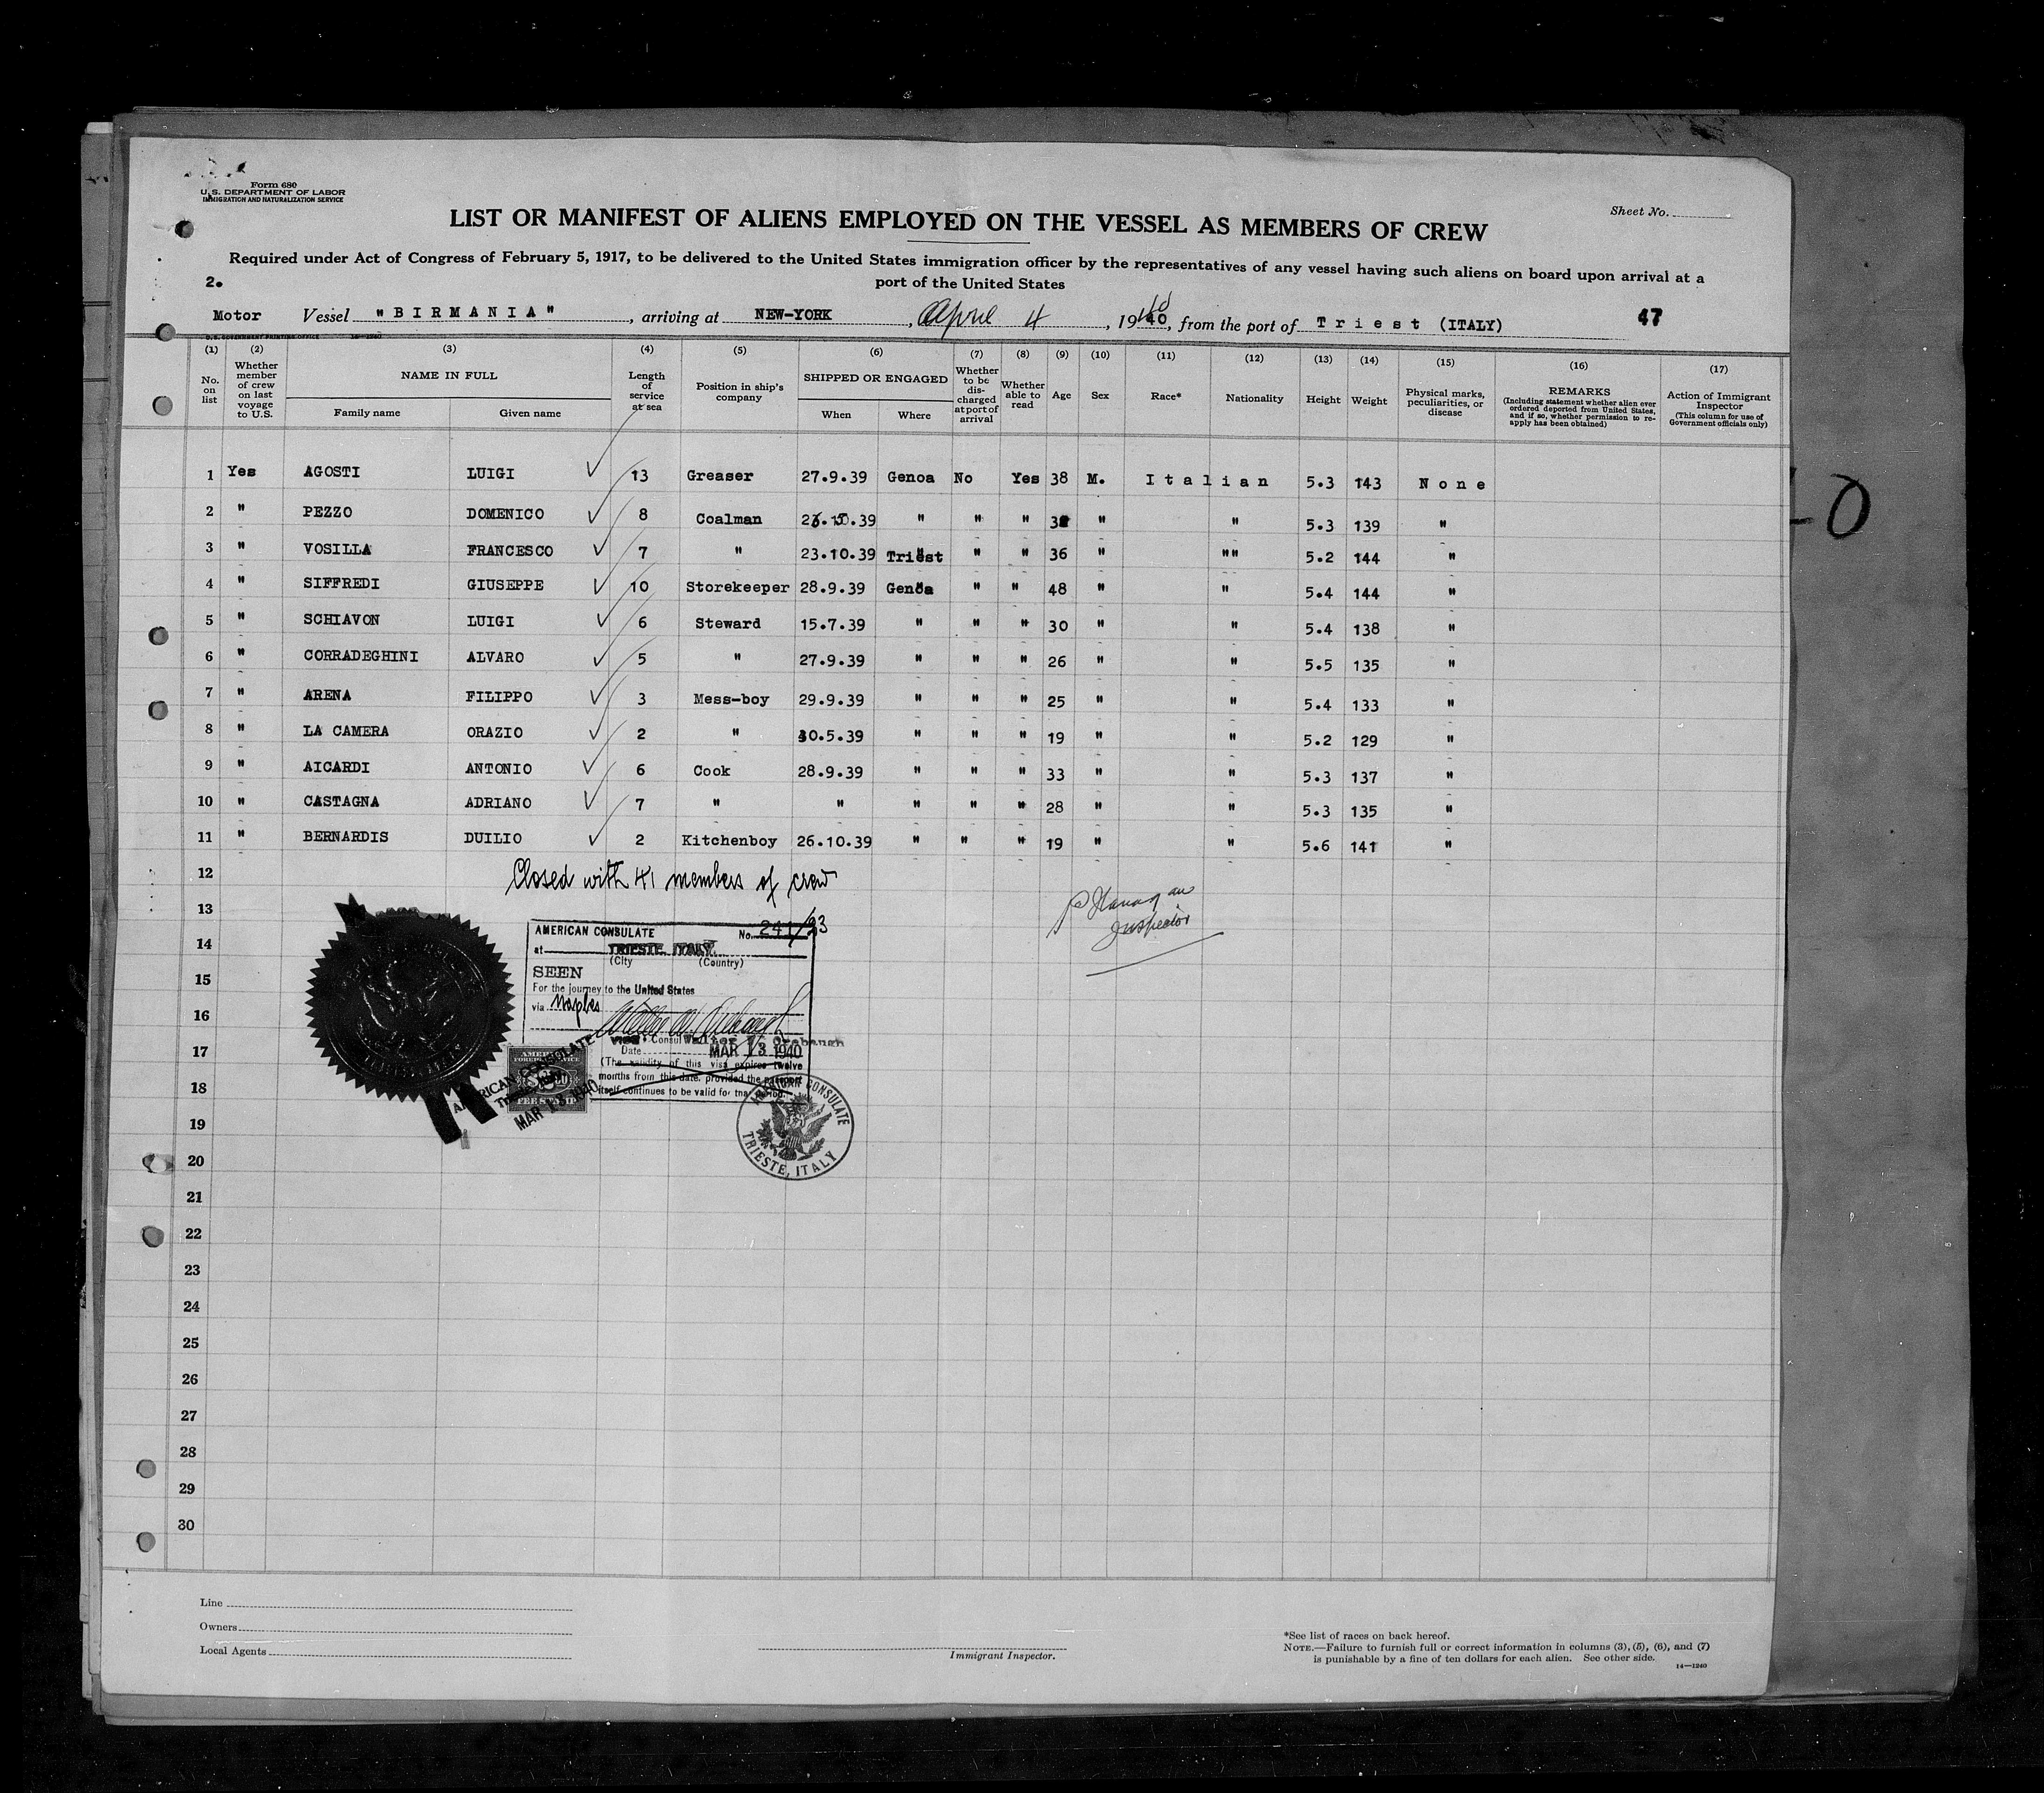 Form 680
U. S. DEPARTMENT OF LABOR
IMMIGRATION AND NATURALIZATION SERVICE
Sheet No.
LIST OR MANIFEST OF ALIENS EMPLOYED ON THE VESSEL AS MEMBERS OF CREW
Required under Act of Congress of February 5, 1917, to be delivered to the United States immigration officer by the representatives of any vessel having such aliens on board upon arrival at a
port of the United States
2.
Motor Vessel "BIRMANIA", arriving at NEW-YORK, April 4, 1940, from the port of Triest (ITALY) 47
U. S. GOVERNMENT PRINTING OFFICE 14-1240
(1) (2) (3) (4) (5) (6) (7) (8) (9) (10) (11) (12) (13) (14) (15) (16) (17)
No. on list
Whether member of crew on last voyage to U.S.
NAME IN FULL
Family name
Given name
Length of service at sea
Position in ship's company
SHIPPED OR ENGAGED
When
Where
Whether to be discharged at port of arrival
Whether able to read
Age
Sex
Race*
Nationality
Height
Weight
Physical marks, peculiarities, or disease
REMARKS
(Including statement whether alien ever ordered deported from United States, and if so, whether permission to reapply has been obtained)
Action of Immigrant Inspector
(This column for use of Government officials only)
1 Yes AGOSTI LUIGI 13 Greaser 27.9.39 Genoa No Yes 38 M. Italian 5.3 143 None
2 " PEZZO DOMENICO 8 Coalman .39 " " " " " 5.3 139 "
3 " VOSILLA FRANCESCO 7 " 23.10.39 Triest " " 36 " "" 5.2 144 "
4 " SIFFREDI GIUSEPPE 10 Storekeeper 28.9.39 Genoa " " 48 " " 5.4 144 "
5 " SCHIAVON LUIGI 6 Steward 15.7.39 " " " 30 " " 5.4 138 "
6 " CORRADEGHINI ALVARO 5 " 27.9.39 " " " 26 " " 5.5 135 "
7 " ARENA FILIPPO 3 Mess-boy 29.9.39 " " " 25 " " 5.4 133 "
8 " LA CAMERA ORAZIO 2 " 30.5.39 " " " 19 " " 5.2 129 "
9 " AICARDI ANTONIO 6 Cook 28.9.39 " " " 33 " " 5.3 137 "
10 " CASTAGNA ADRIANO 7 " " " " " 28 " " 5.3 135 "
11 " BERNARDIS DUILIO 2 Kitchenboy 26.10.39 " " " 19 " " 5.6 141 "
12
Closed with 41 members of crew
Inspector
13
14
15
16
17
18
19
20
21
22
23
24
25
26
27
28
29
30
AMERICAN CONSULATE No. 241/93
at TRIESTE, ITALY.
(City (Country)
SEEN
For the journey to the United States
via Naples
Vice Consul
Date MAR 13 1940
(The validity of this visa expires twelve
months from this date, provided the passport
itself continues to be valid for that period.
AMERICAN CONSULATE
MAR 13 1940
FEE STAMP
AMERICAN CONSULATE
TRIESTE, ITALY
Line
Owners
Local Agents
Immigrant Inspector.
*See list of races on back hereof.
NOTE.—Failure to furnish full or correct information in columns (3), (5), (6), and (7)
is punishable by a fine of ten dollars for each alien. See other side.
14—1240